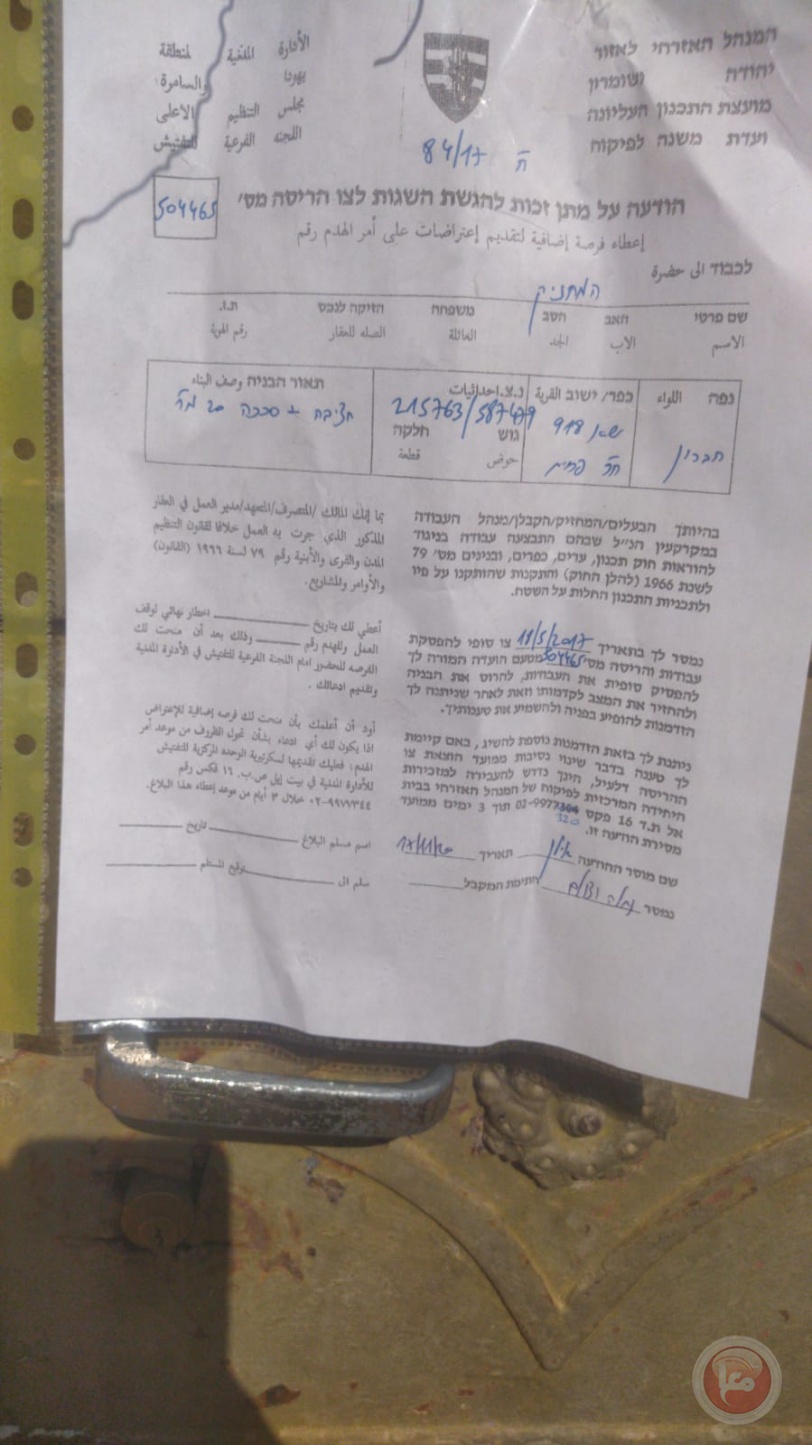 המנהל האזרחי לאזור
יהודה ושומרון
מועצת התכנון העליונה
ועדת משנה לפיקוח
الأدارة المدنية لمنطقة
يهودا والسامرة
مجلس التنظيم الاعلى
اللجنة الفرعية للتفتيش
ח 84/17
הודעה על מתן זכות להגשת השגות לצו הריסה מס' 504465
إعطاء فرصة إضافية لتقديم إعتراضات على أمر الهدم رقم
לכבוד الى حضرة
המחזיק
שם פרטי האב הסב משפחה הזיקה לנכס ת.ז.
الاسم الاب الجد العائلة الصله للعقار رقم الهوية
נפה اللواء
חברון
כפר/ ישוב القرية
918
נ.צ.احداثيات
215763/587479
גוש חלקה
حوض قطعة
תאור הבניה وصف البناء
חציבה + סככה 20 מ"ר
בהיותך הבעלים/המחזיק/הקבלן/מנהל העבודה
במקרקעין הנ"ל שבהם התבצעה עבודה בניגוד
להוראות חוק תכנון, ערים, כפרים, ובנינים מס' 79
לשנת 1966 (להלן החוק) והתקנות שהותקנו על פיו
ולתכניות התכנון החלות על השטח.
נמסר לך בתאריך 11/5/2017 צו סופי להפסקת
עבודות והריסה מס' 504465 מטעם הועדה המורה לך
להפסיק סופית את העבודות, להרוס את הבניה
ולהחזיר את המצב לקדמותו וזאת לאחר שניתנה לך
הזדמנות להופיע בפניה ולהשמיע את טענותיך.
ניתנת לך בזאת הזדמנות נוספת להשיג, באם קיימת
לך טענה בדבר שינוי נסיבות ממועד הוצאת צו
ההריסה דלעיל, הינך נדרש להעבירה למזכירות
היחידה המרכזית לפיקוח של המנהל האזרחי בבית
אל ת.ד 16 פקס 02-9977 320 תוך 3 ימים ממועד
מסירת הודעה זו.
שם מוסר ההודעה אילן תאריך
נמסר חתימת המקבל
بما إنك المالك /المتصرف/المتعهد/مدير العمل في العقار
المذكور الذي جرت به العمل خلافا لقانون التنظيم
المدن والقرى والأبنية رقم ٧٩ لسنة ١٩٦٦ (القانون)
والأوامر والمشاريع.
أعطي لك بتاريخ اخطار نهائي لوقف
العمل وللهدم رقم وذلك بعد أن منحت لك
الفرصه للحضور امام اللجنة الفرعية للتفتيش في الأدارة المدنية
وتقديم ادعائك .
أود أن أعلمك بأن منحت لك فرصه إضافية للإعتراض
اذا يكون لك أي ادعاء بشأن تحول الظروف من موعد أمر
الهدم: فعليك تقديمها لسكرتيرية الوحده المركزية للتفتيش
للأدارة المدنية في بيت إيل ص.ب. ١٦ فكس رقم
٠٢-٩٩٧٧٣٤٤ خلال ٣ أيام من موعد إعطاء هذا البلاغ.
اسم مسلم البلاغ تاريخ
سلم ال توقيع المستلم
معا